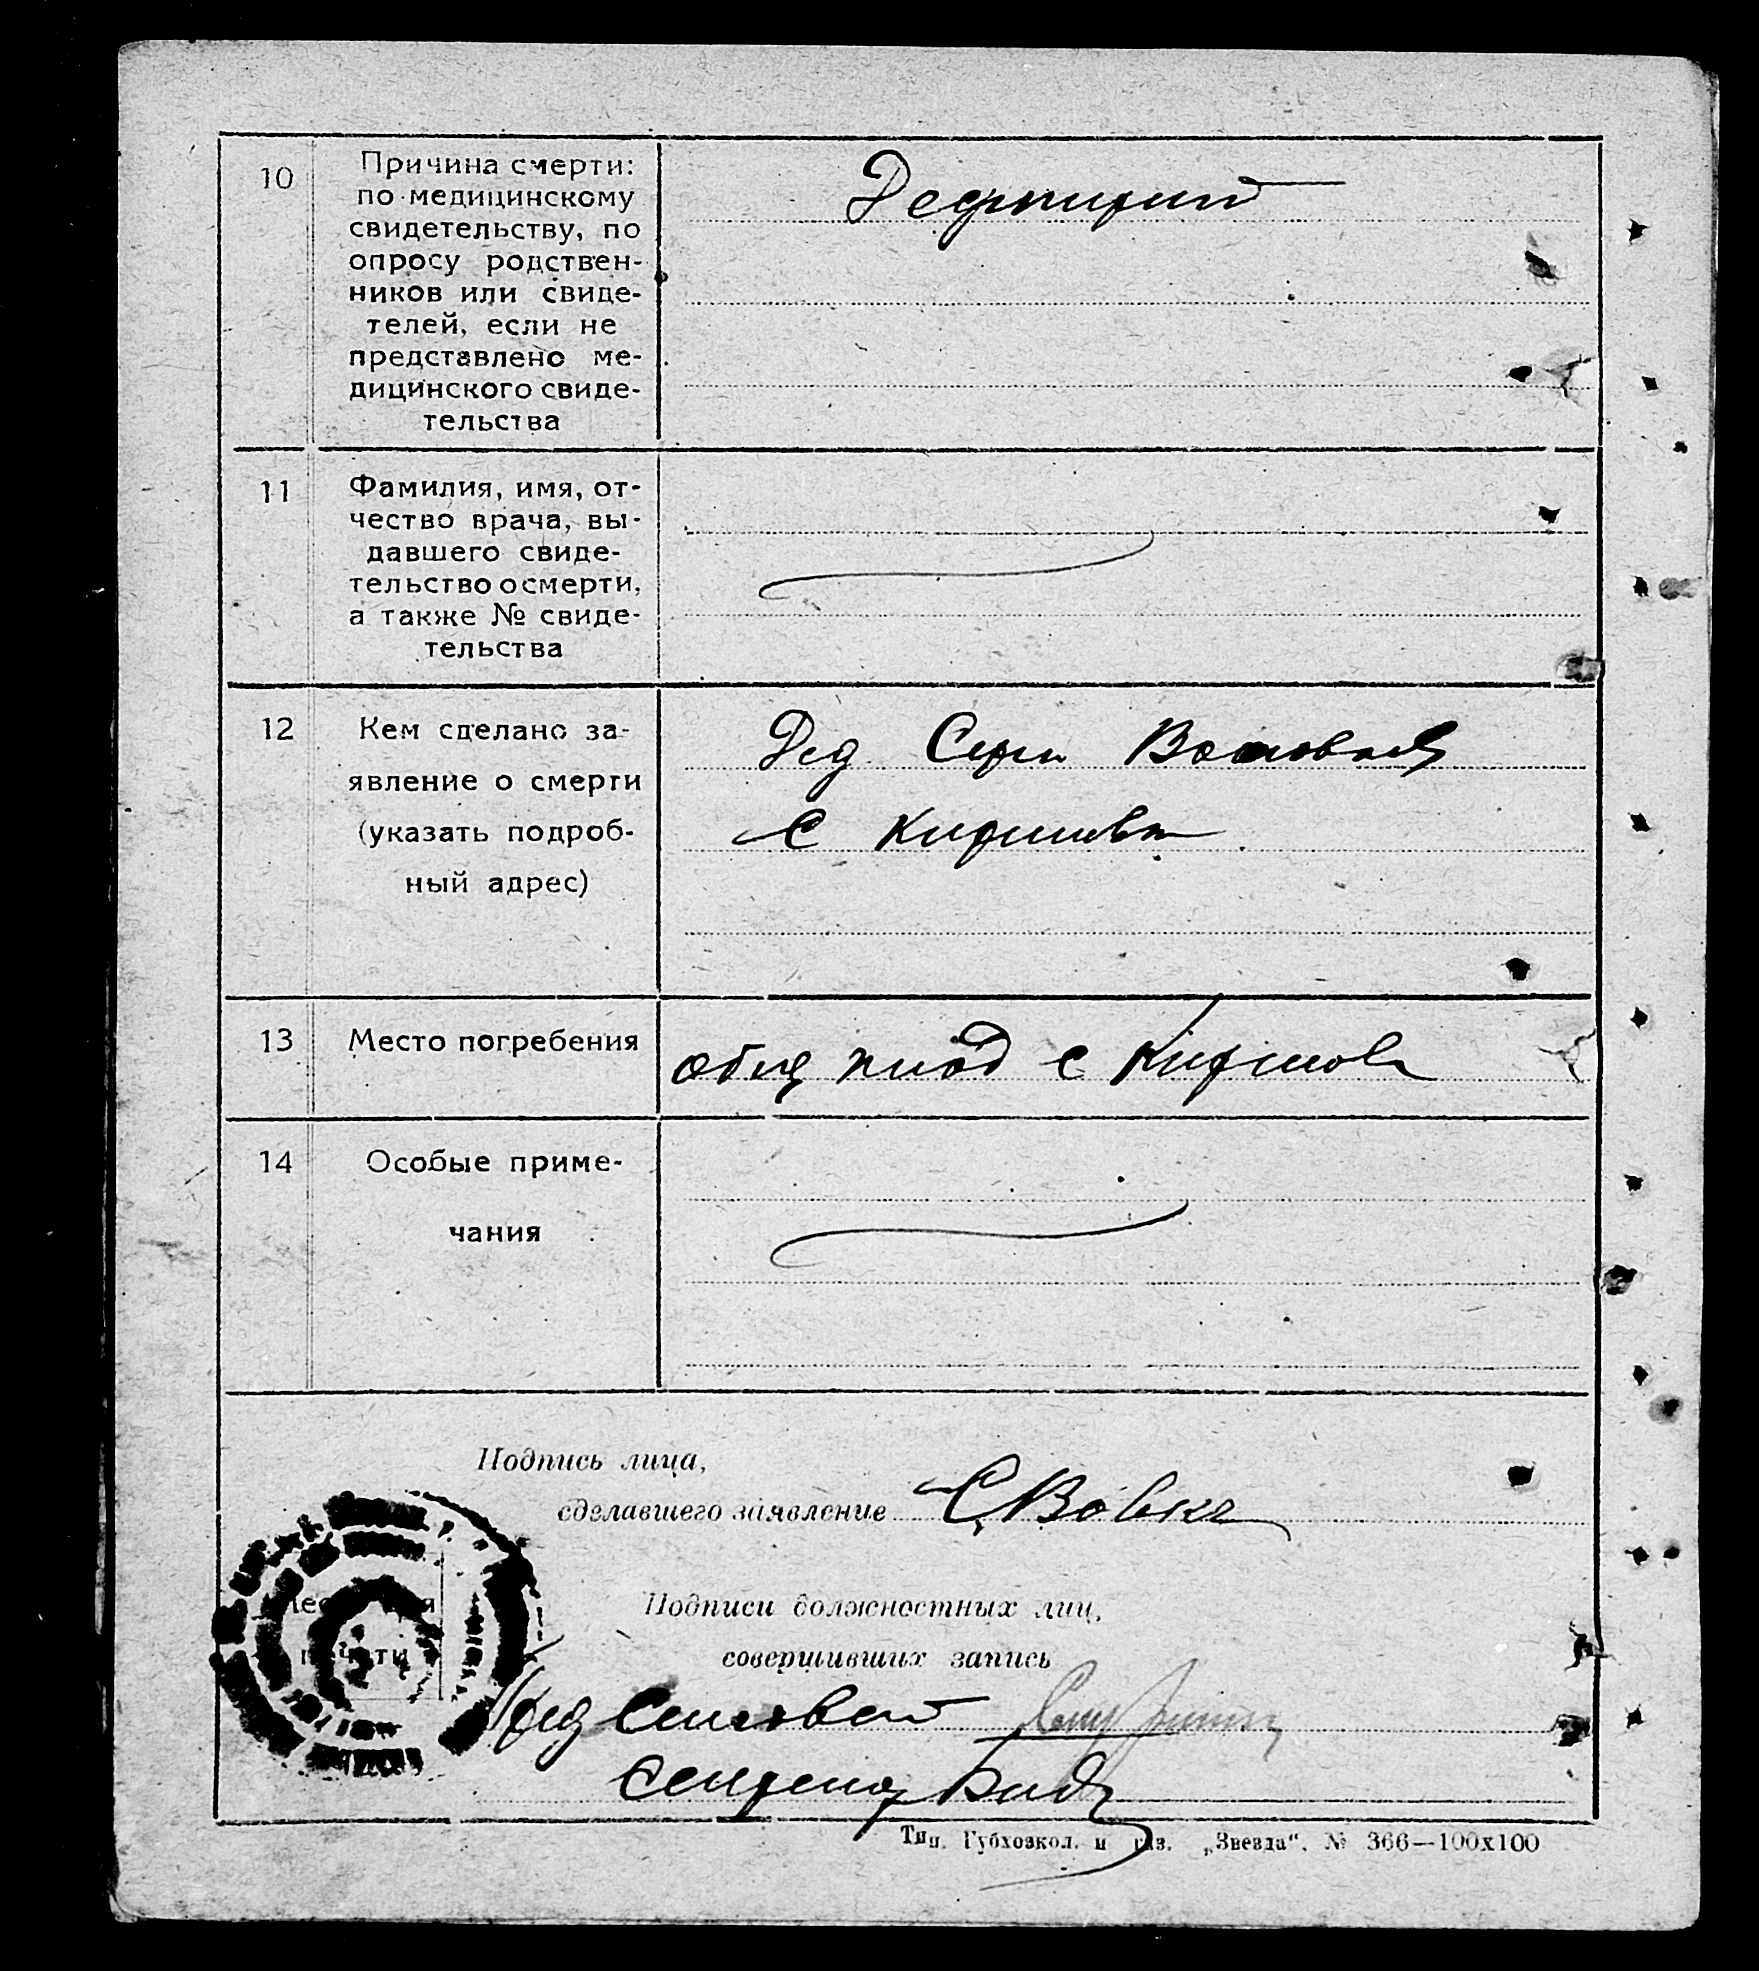 10 Причина смерти:
по медицинскому
свидетельству, по
опросу родствен-
ников или свиде-
телей, если не
представлено ме-
дицинского свиде-
тельства
11 Фамилия, имя, от-
чество врача, вы-
давшего свиде-
тельство о смерти,
а также № свиде-
тельства
12 Кем сделано за-
явление о смерти
(указать подроб-
ный адрес)
Дед
С
13 Место погребения
общ с
14 Особые приме-
чания
Подпись лица,
сделавшего заявление С Вовка
Место для
печати
Подписи должностных лиц,
совершивших запись
Тип. Губхозкол. и газ. „Звезда“. № 366—100х100